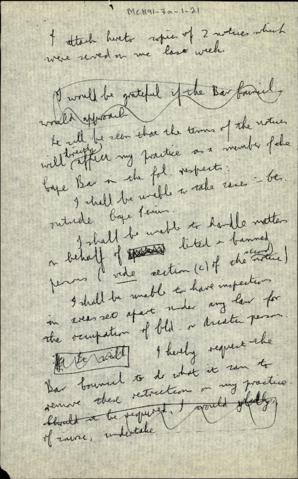 MCH91-7a-1-21
I attach hereto copies of 2 notices which
were served on me last week.
I would be grateful if the Bar Council
would approach
It will be seen that the terms of the notices
will directly affect my practice as a member of the
Cape Bar in the fol. respects:
I shall be unable to take cases
outside Cape Penins.
I shall be unable to handle matters
on behalf of listed or banned
persons (vide section (c) of the notice)
I shall be unable to have inspections
in areas set apart under any law for
the occupation of person
I hereby request the
Bar Council to do what it can to
remove these restrictions on my practice
Should it be required, I would gladly,
of course, undertake